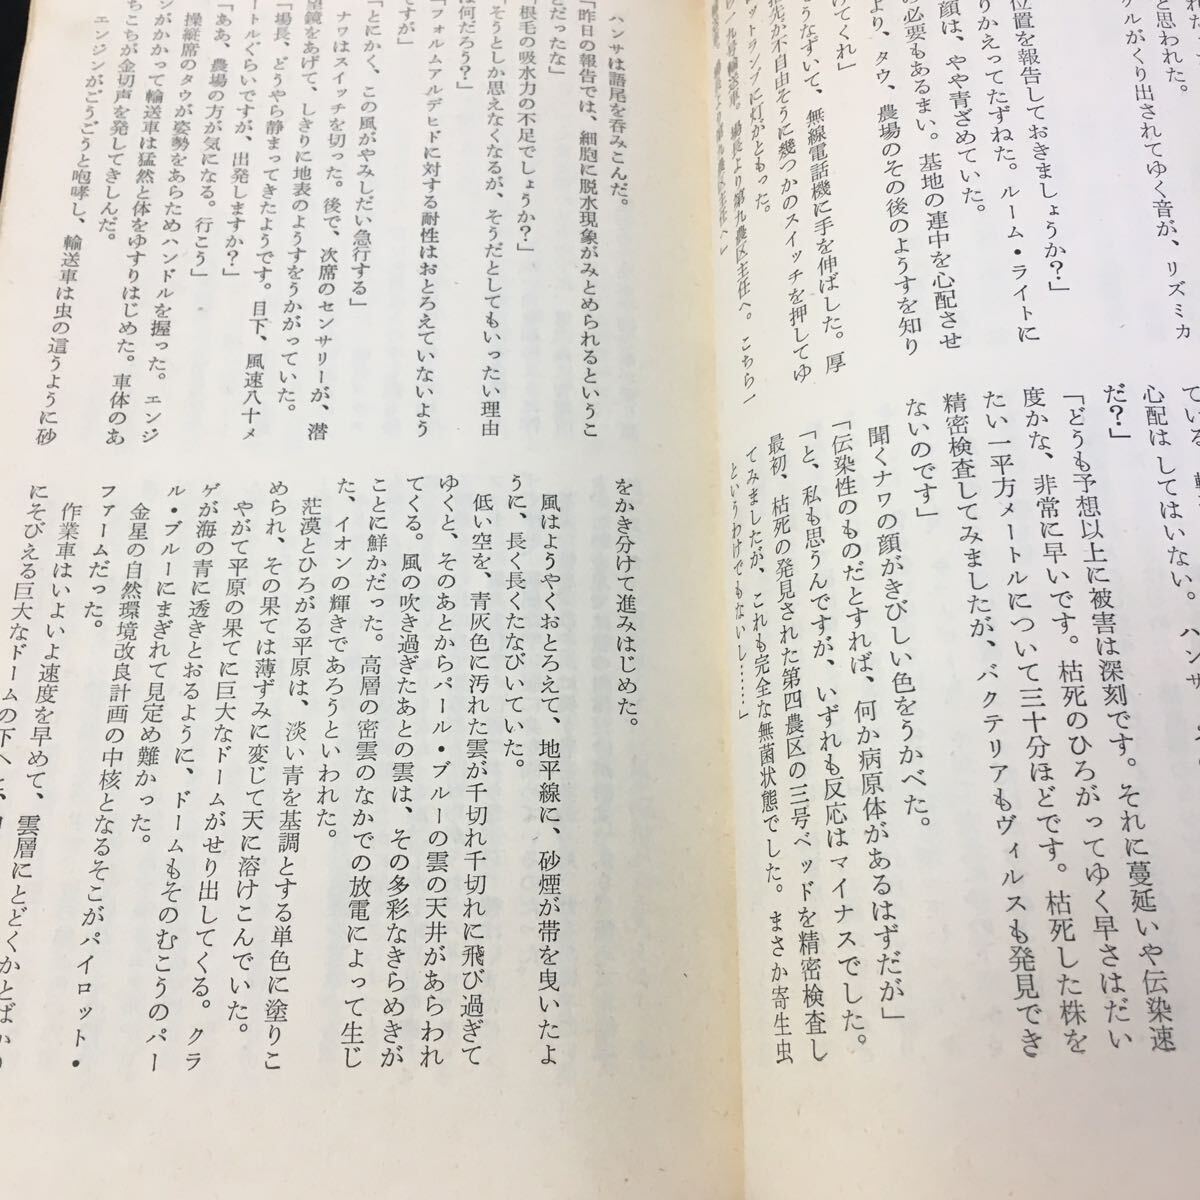 れた。
と思われた。
ケルがくり出されてゆく音が、リズミカ
位置を報告しておきましょうか？」
りかえってたずねた。ルーム・ライトに
顔は、やや青ざめていた。
の必要もあるまい。基地の連中を心配させ
より、タウ、農場のその後のようすを知り
てくれ」
うなずいて、無線電話機に手を伸ばした。厚
指先が不自由そうに幾つかのスイッチを押してゆ
ットランプに灯がともった。
九号輸送車。場長より第九農区主任へ。こちら一
場長より第九農区主任へ」
ている。
心配はしてはいない。ハンサ
だ？」
「どうも予想以上に被害は深刻です。それに蔓延いや伝染速
度かな、非常に早いです。枯死のひろがってゆく早さはだい
たい一平方メートルについて三十分ほどです。枯死した株を
精密検査してみましたが、バクテリアもヴィルスも発見でき
ないのです」
聞くナワの顔がきびしい色をうかべた。
「伝染性のものだとすれば、何か病原体があるはずだが」
「と、私も思うんですが、いずれも反応はマイナスでした。
最初、枯死の発見された第四農区の三号ベッドを精密検査し
てみましたが、これも完全な無菌状態でした。まさか寄生虫
というわけでもないし……」
ハンサは語尾を呑みこんだ。
「昨日の報告では、細胞に脱水現象がみとめられるというこ
とだったな」
「根毛の吸水力の不足でしょうか？」
「そうとしか思えなくなるが、そうだとしてもいったい理由
は何だろう？」
「フォルムアルデヒドに対する耐性はおとろえていないよう
ですが」
「とにかく、この風がやみしだい急行する」
ナワはスイッチを切った。後で、次席のセンサリーが、潜
望鏡をあげて、しきりに地表のようすをうかがっていた。
「場長、どうやら静まってきたようです。目下、風速八十メ
ートルぐらいですが、出発しますか？」
「ああ、農場の方が気になる。行こう」
操縦席のタウが姿勢をあらためハンドルを握った。エンジ
ンがかかって輸送車は猛然と体をゆすりはじめた。車体のあ
ちこちが金切声を発してきしんだ。
エンジンがごうごうと咆哮し、輸送車は虫の這うように砂
をかき分けて進みはじめた。
風はようやくおとろえて、地平線に、砂煙が帯を曳いたよ
うに、長く長くたなびいていた。
低い空を、青灰色に汚れた雲が千切れ千切れに飛び過ぎて
ゆくと、そのあとからパール・ブルーの雲の天井があらわれ
てくる。風の吹き過ぎたあとの雲は、その多彩なきらめきが
ことに鮮かだった。高層の密雲のなかでの放電によって生じ
た、イオンの輝きであろうといわれた。
茫漠とひろがる平原は、淡い青を基調とする単色に塗りこ
められ、その果ては薄ずみに変じて天に溶けこんでいた。
やがて平原の果てに巨大なドームがせり出してくる。クラ
ゲが海の青に透きとおるように、ドームもそのむこうのパー
ル・ブルーにまぎれて見定め難かった。
金星の自然環境改良計画の中核となるそこがパイロット・
ファームだった。
作業車はいよいよ速度を早めて、雲層にとどくかとばかり
にそびえる巨大なドームの下へと